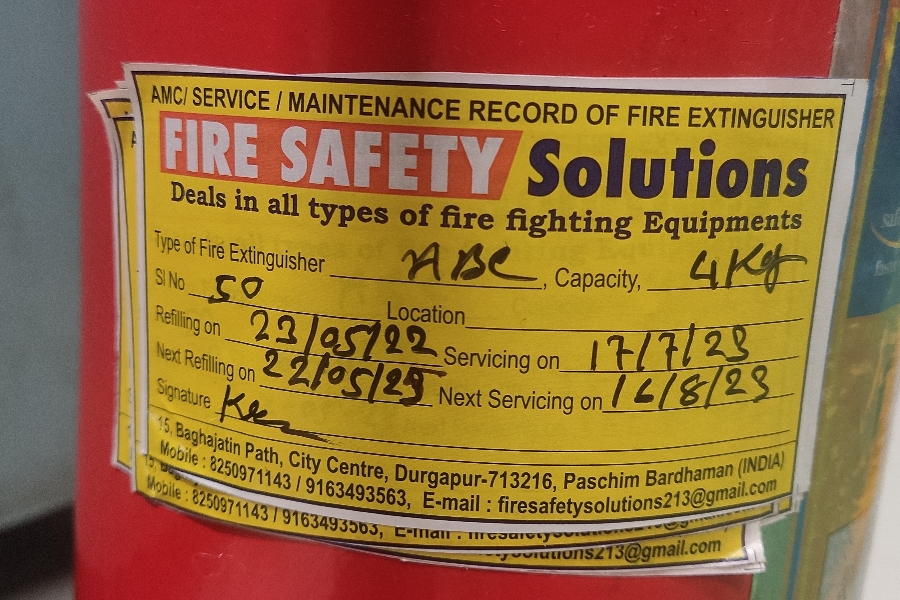 AMC/ SERVICE / MAINTENANCE RECORD OF FIRE EXTINGUISHER
FIRE SAFETY Solutions
Deals in all types of fire fighting Equipments
Type of Fire Extinguisher ABC, Capacity, 4Kg
Sl No 50
Location
Refilling on 23/05/22 Servicing on 17/7/23
Next Refilling on 22/05/25 Next Servicing on 16/8/23
Signature
15, Baghajatin Path, City Centre, Durgapur-713216, Paschim Bardhaman (INDIA)
Mobile : 8250971143 / 9163493563, E-mail : firesafetysolutions213@gmail.com
Mobile : 8250971143 / 9163493563, E-mail :
@gmail.com